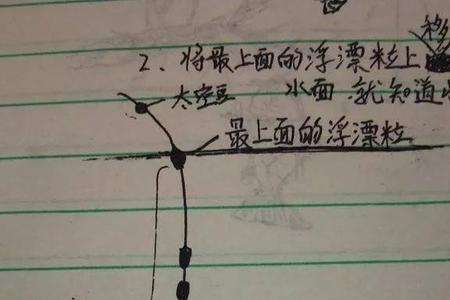 移
2、将最上面的浮漂粒上
太空豆
水面.就知道
最上面的浮漂粒